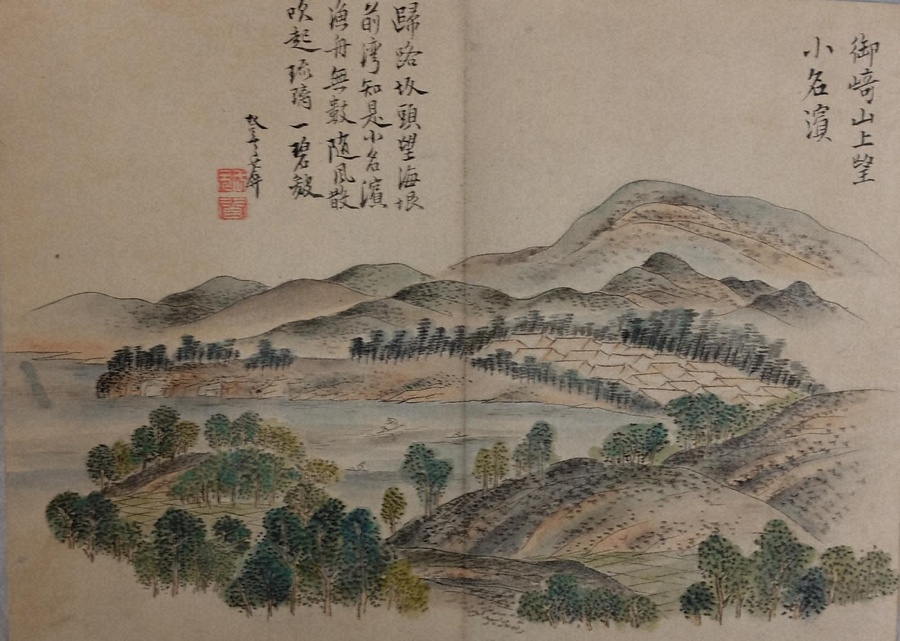 御﨑山上望
小名濱
歸路坂頭望海垠
前湾知是小名濱
漁舟無数随風散
吹起琉璃一碧皴